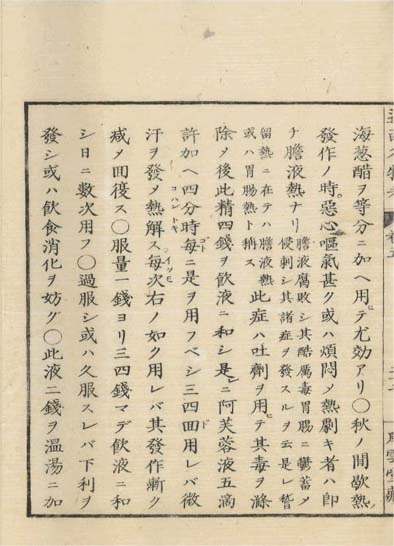 海葱醋ヲ等分ニ加ヘ用テ尤効アリ〇秋ノ間歇熱
發作ノ時。惡心嘔氣甚ク或ハ煩悶メ熱劇キ者ハ即
チ膽液熱ナリ膽液腐敗シ其酷厲毒胃腸ニ鬱蓄メ
侵刺シ其諸症ヲ發スルヲ云是レ稽
留熱ニ在テハ膽液熱
或ハ胃膓熱ト柄ス此症ハ吐劑ヲ用テ其毒ヲ滌
除メ後此精四錢ヲ飲液ニ和シ是ニ阿芙蓉液五滴
許加ヘ四分時每ニ是ヲ用フベシ三四囬用レバ微
汗ヲ發メ熱解ス每次右ノ如ク用レバ其發作漸ク
減メ囬復ス〇服量一錢ヨリ三四錢マデ飲液ニ和
シ日ニ數次用フ〇過服シ或ハ久服スレバ下利ヲ
發シ或ハ飲食消化ヲ妨グ〇此液二錢ヲ温湯ニ加